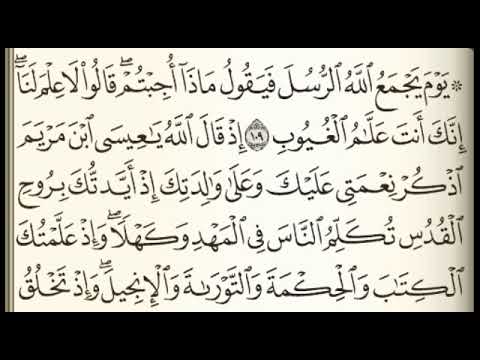 ۞ يَوْمَ يَجْمَعُ ٱللَّهُ ٱلرُّسُلَ فَيَقُولُ مَاذَآ أُجِبْتُمْ ۖ قَالُوا۟ لَا عِلْمَ لَنَآ ۖ
إِنَّكَ أَنتَ عَلَّٰمُ ٱلْغُيُوبِ ١٠٩ إِذْ قَالَ ٱللَّهُ يَٰعِيسَى ٱبْنَ مَرْيَمَ
ٱذْكُرْ نِعْمَتِى عَلَيْكَ وَعَلَىٰ وَٰلِدَتِكَ إِذْ أَيَّدتُّكَ بِرُوحِ
ٱلْقُدُسِ تُكَلِّمُ ٱلنَّاسَ فِى ٱلْمَهْدِ وَكَهْلًا ۖ وَإِذْ عَلَّمْتُكَ
ٱلْكِتَٰبَ وَٱلْحِكْمَةَ وَٱلتَّوْرَىٰةَ وَٱلْإِنجِيلَ ۖ وَإِذْ تَخْلُقُ